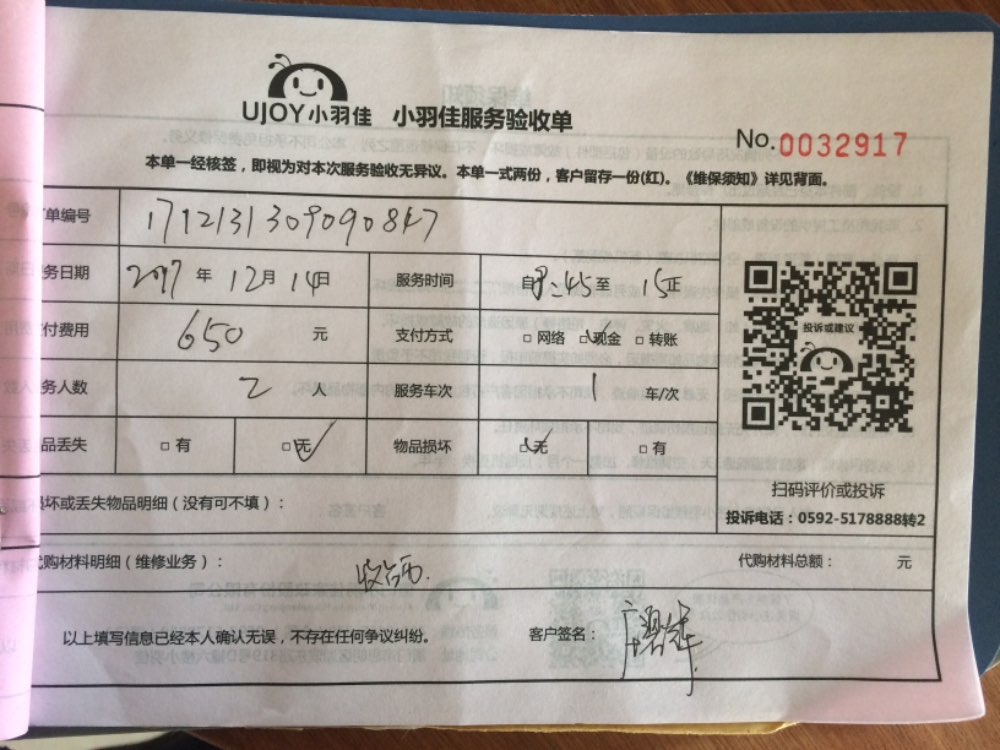 UJOY小羽佳 小羽佳服务验收单
No.0032917
本单一经核签，即视为对本次服务验收无异议。本单一式两份，客户留存一份(红)。《维保须知》详见背面。
单编号 1712131309090847
务日期 2017 年 12月 14日 服务时间 自8:45至 15正
付费用 650 元 支付方式 □ 网络 □现金 □ 转账
务人数 2 人 服务车次 1 车/次
品丢失 □ 有 □ 无 物品损坏 □ 无 □ 有
投诉或建议
扫码评价或投诉
投诉电话：0592-5178888转2
损坏或丢失物品明细（没有可不填）：
代购材料明细（维修业务）： 代购材料总额： 元
以上填写信息已经本人确认无误，不存在任何争议纠纷。 客户签名：